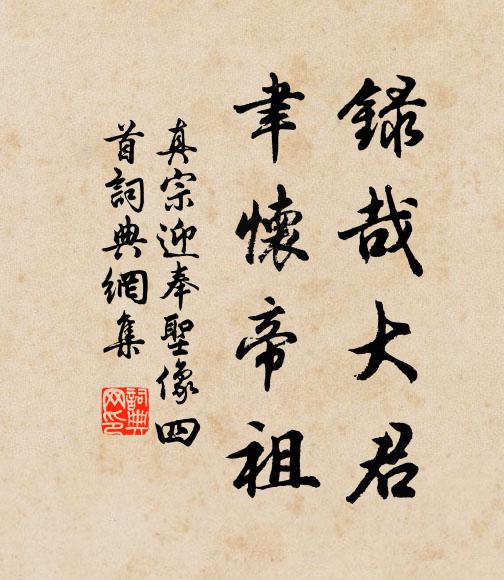 録哉大君
聿懷帝祖
真宗迎奉聖像四
首詞典網集
詞典
网印